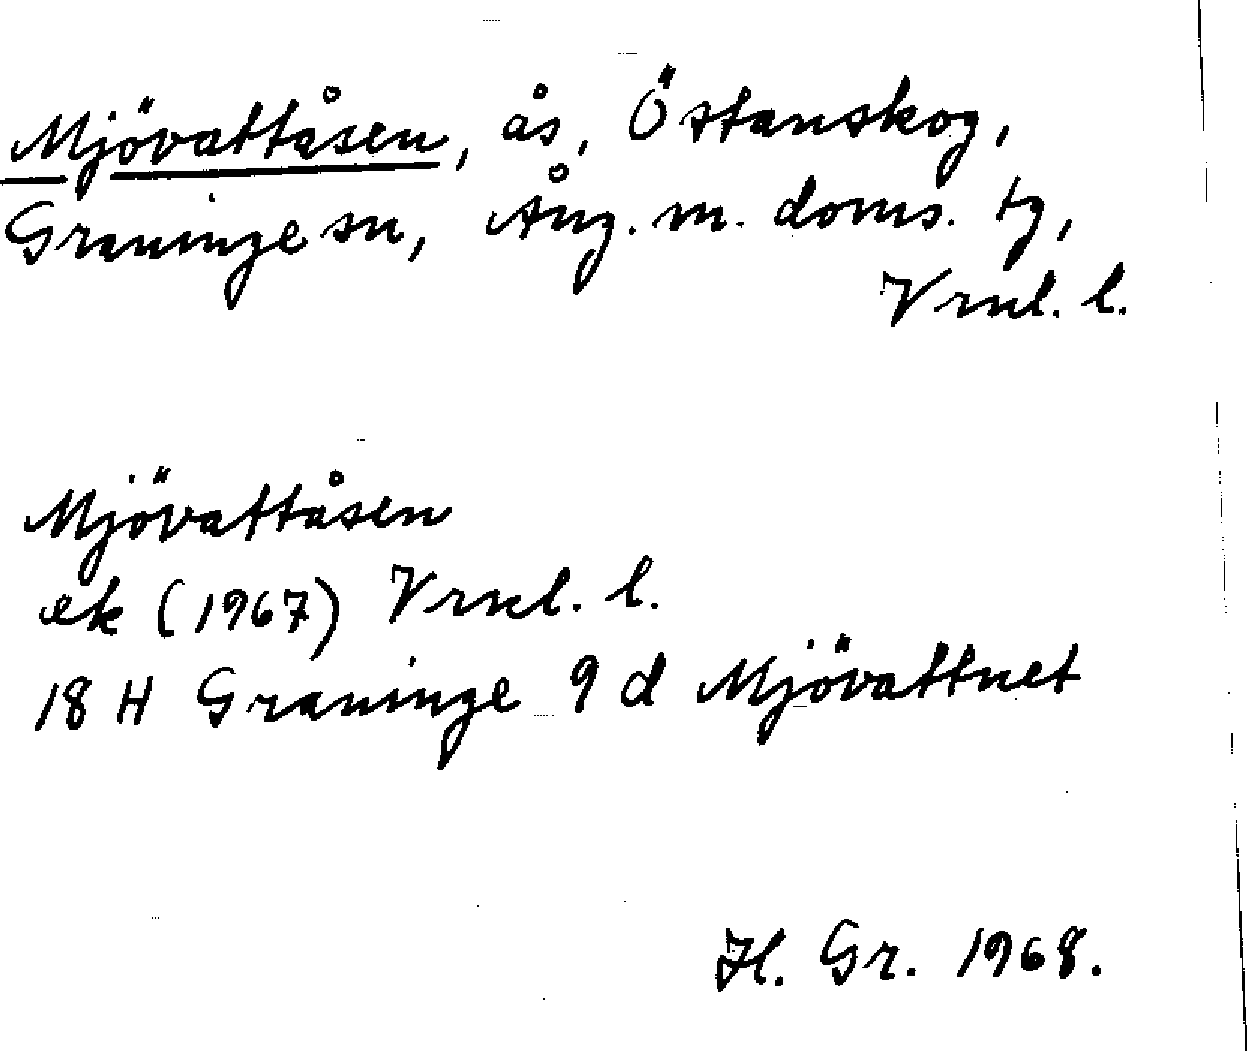 Mjövattåsen, ås, Östanskog,
Graninge sn, Ång. m. doms. tg,
Vrnl. l.
Mjövattåsen
ek (1967) Vrnl. l.
18 H Graninge 9 d Mjövattnet
H. Gr. 1968.